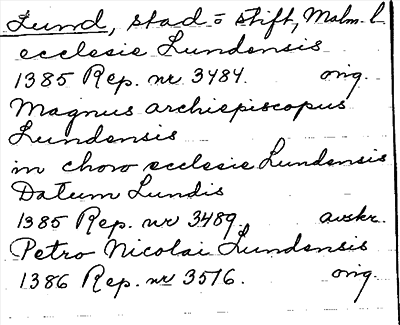 Lund, stad o stift, Malm. l.
ecclesie Lundensis
1385 Rep. nr 3484. orig.
Magnus archiepiscopus
Lundensis
in choro ecclesie Lundensis
Datum Lundis
1385 Rep. nr 3489. avskr.
Petro Nicolai Lundensis
1386 Rep. nr 3516. orig.